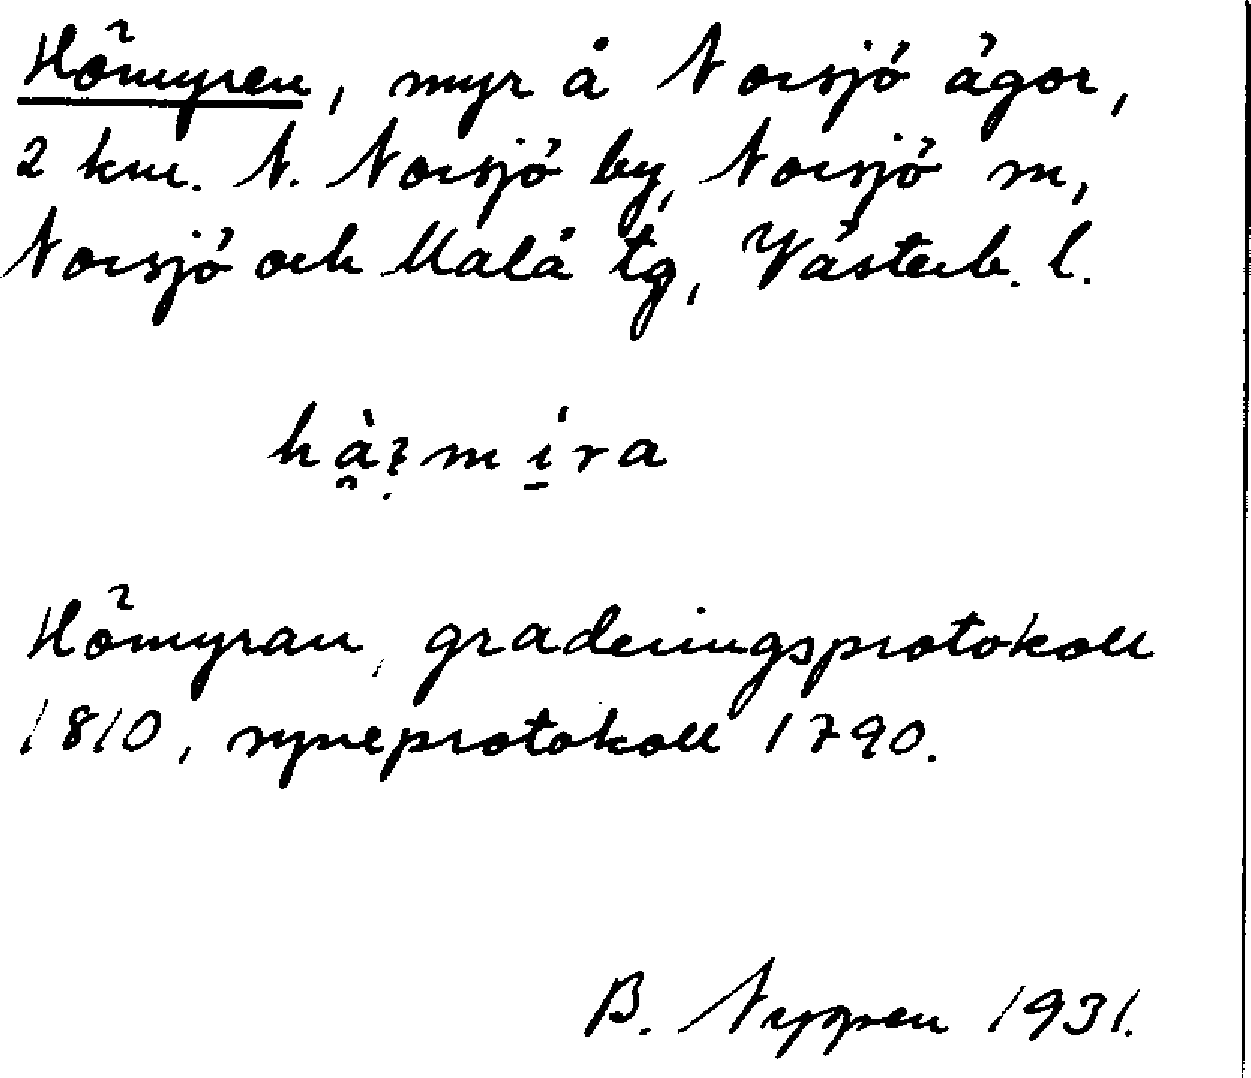 Hömyren, myr å Norsjö ägor,
2 km. N. Norsjö by, Norsjö sn,
Norsjö och Malå tg, Västerb. l.
Hömyran, graderingsprotokoll
1810, syneprotokoll 1790.
B. Nygren 1931.